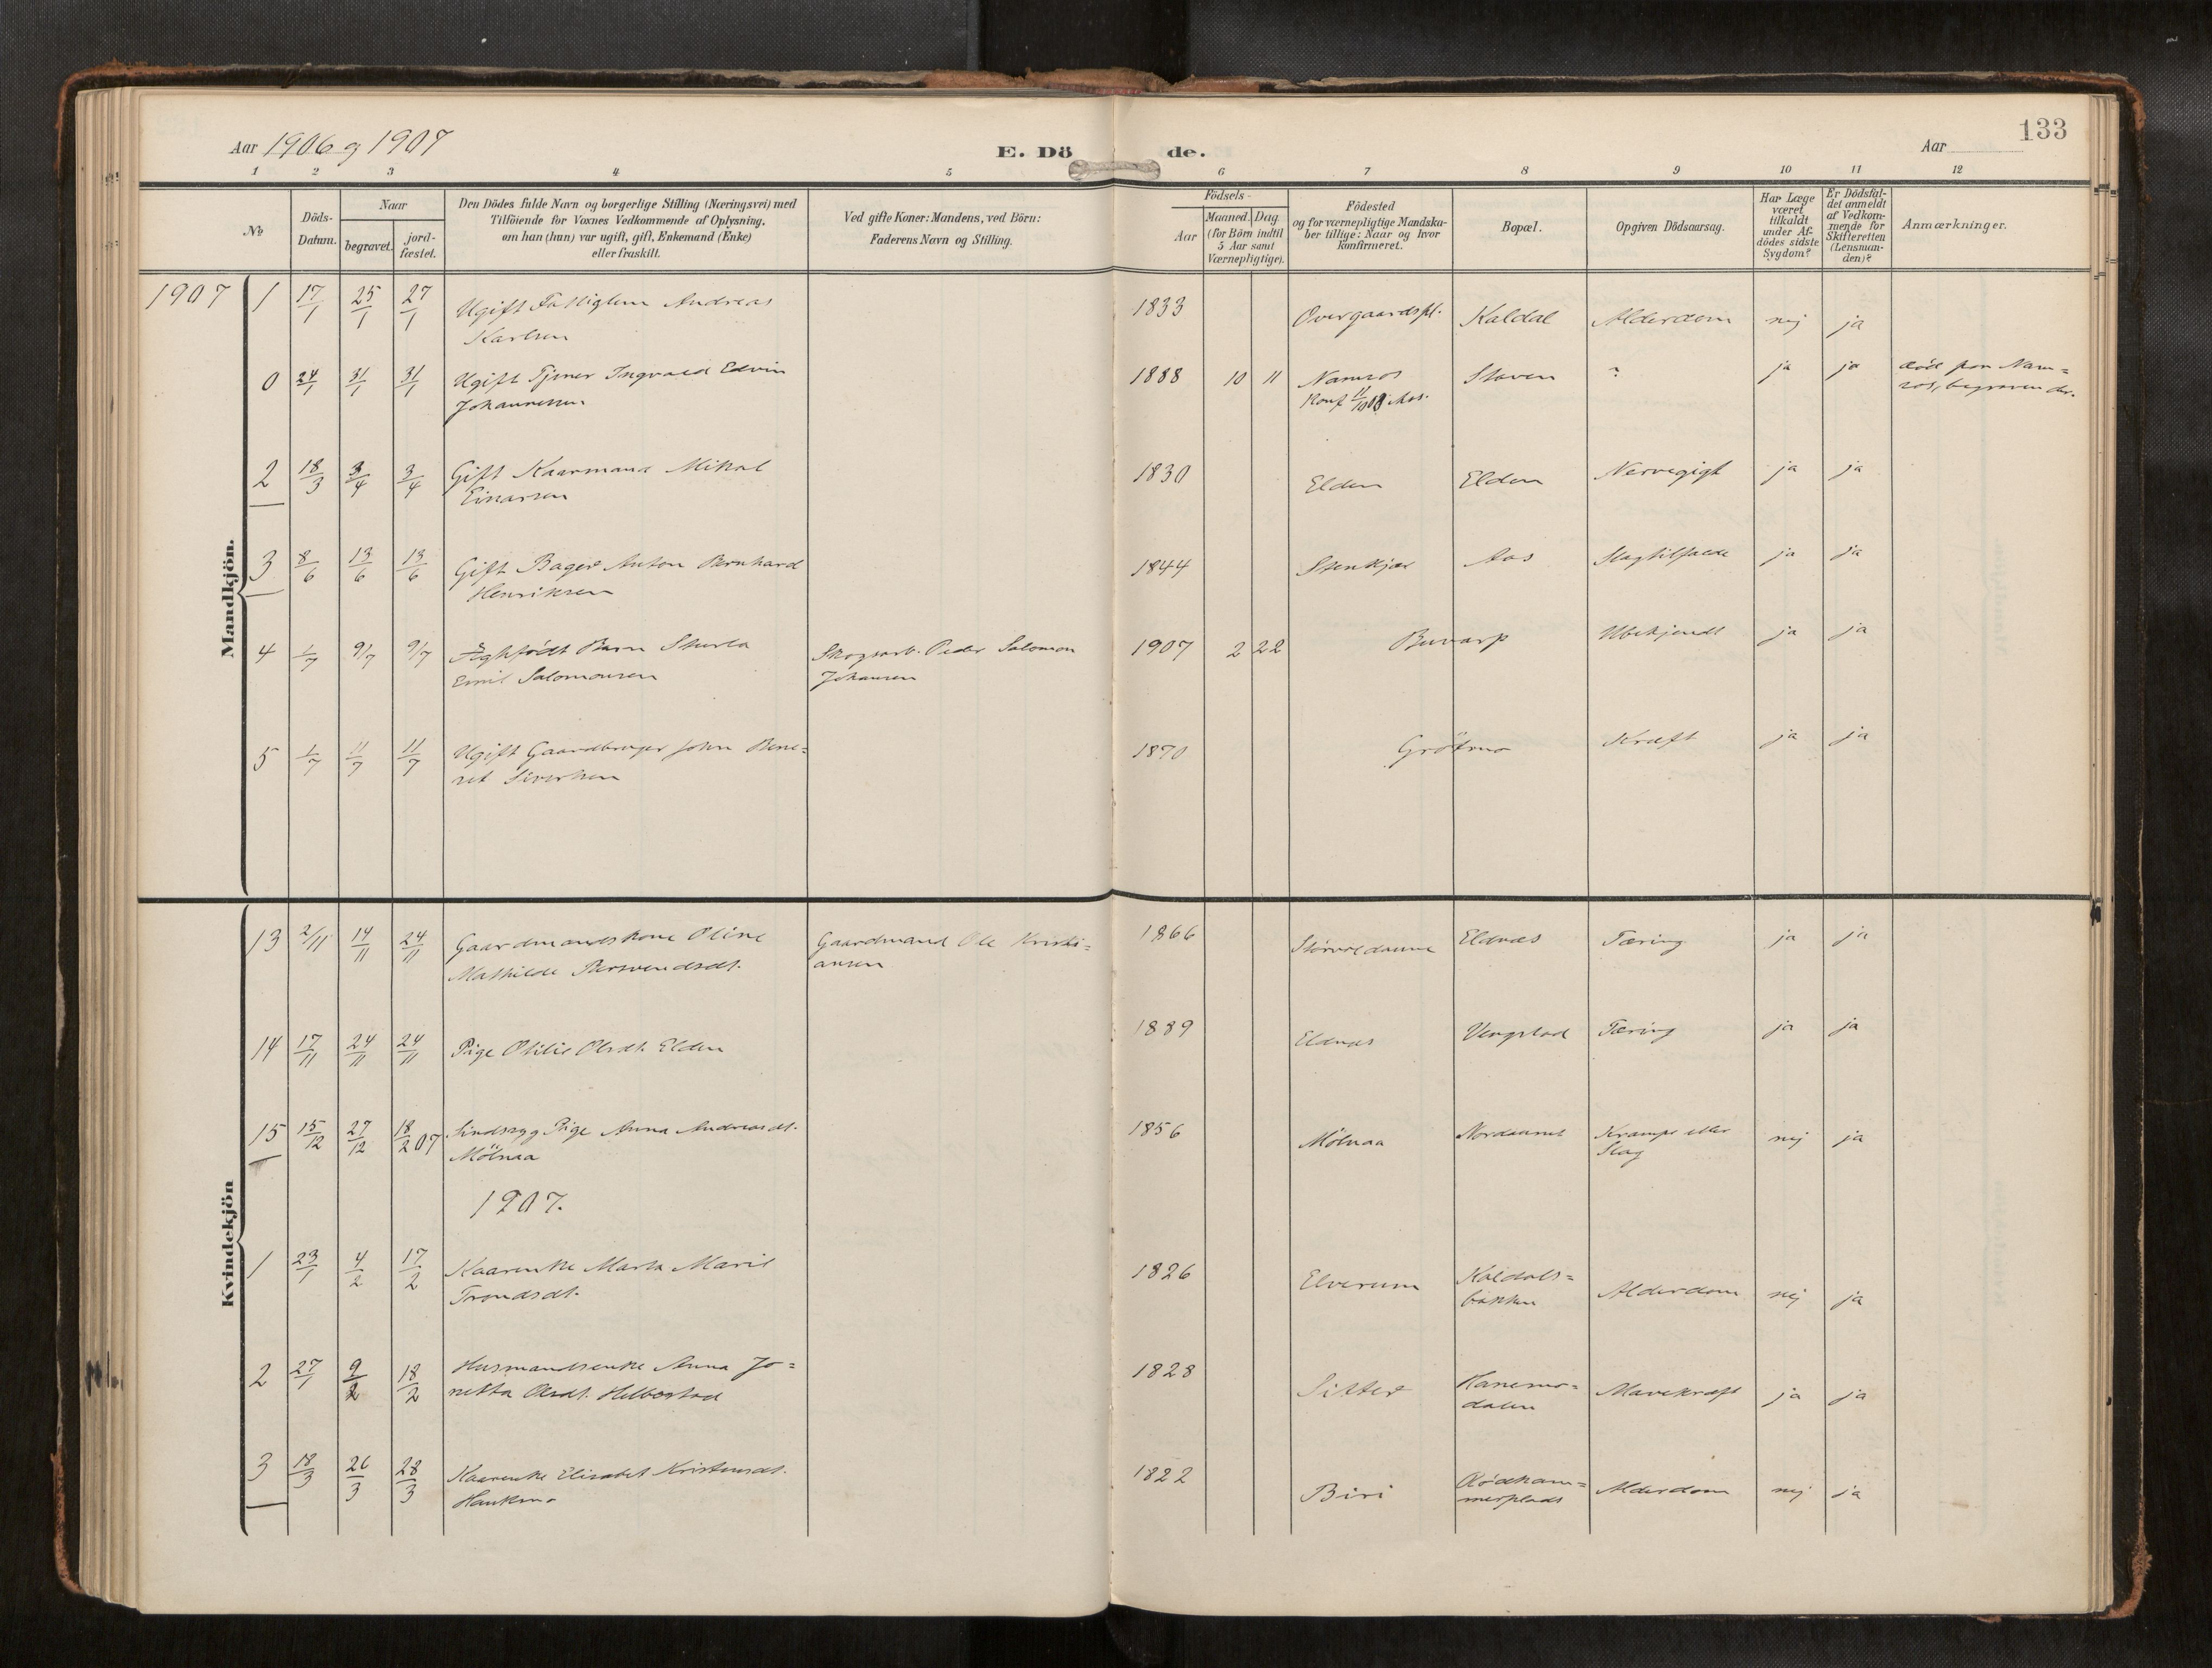 133
Aar 1906 og 1907
E. Dö de.
Aar
1 2 3 4 5 6 7 8 9 10 11 12
No
Döds-
Datum.
Naar
begravet.
jord-
fæstet.
Den Dödes fulde Navn og borgerlige Stilling (Næringsvei) med
Tilföiende for Voxnes Vedkommende af Oplysning,
om han (hun) var ugift, gift, Enkemand (Enke)
eller fraskilt.
Ved gifte Koner: Mandens, ved Börn:
Faderens Navn og Stilling.
Födsels-
Aar
Maaned. Dag
(for Börn indtil
5 Aar samt
Værnepligtige).
Födested
og for værnepligtige Mandska-
ber tillige: Naar og hvor
konfirmeret.
Bopæl.
Opgiven Dödsaarsag.
Har Læge
været
tilkaldt
under Af-
dödes sidste
Sygdom?
Er Dödsfal-
det anmeldt
af Vedkom-
mende for
Skifteretten
(Lensman-
den)?
Anmærkninger.
Mandkjön.
1907 1 17/1 25/1 27/1 Ugift Fattiglem Andreas
Karlsen
1833 Overgaardspl. Kaldal Alderdom nej ja
0 24/1 31/1 31/1 Ugift Tjener Ingvald Edvin
Johannesen
1888 10 11 Namsos
Konf 11/10 03 Aas.
Staven ? ja ja død paa Nam=
sos, begraven der.
2 18/3 3/4 3/4 Gift Kaarmand Mikal
Einarsen
1830 Elden Elden Nervegigt ja ja
3 8/6 13/6 13/6 Gift Bager Anton Bernhard
Henriksen
1844 Stenkjær Aas Slagtilfælde ja ja
4 1/7 9/7 9/7 Ægtefødt Barn Sturla
Emil Salomonsen
Skogsarb. Peder Salomon
Johansen
1907 2 22 Buvarp Ubekjendt ja ja
5 1/7 11/7 11/7 Ugift Gaardbruger John Bene=
ret Sivertsen
1870 Grötmo Kræft ja ja
Kvindekjön
13 2/11 14/11 24/11 Gaardmandskone Oline
Mathilde
Gaardmand Ole Kristi=
ansen
1866 Eldnæs Tæring ja ja
14 17/11 24/11 24/11 Pige Otilie Olsdt. Elden
1889 Eldnæs Vengstad Tæring ja ja
15 15/12 27/12 18/2 07 Sindssyg Pige Anna Andreasdt.
Mölnaa
1856 Mölnaa Krampe eller
Slag
nej ja
1907.
1 23/1 4/2 17/2 Kaarenke Marta Marie
Trondsdt.
1826 Elverum Kaldals=
bakken
Alderdom nej ja
2 27/1 9/2 18/2 Husmandsenke Anna Jo=
netta Olsdt. Helbostad
1828 Sitter Hanemo=
dalen
Mavekræft ja ja
3 18/3 26/3 28/3 Kaarenke Elisabet Kristensdt.
Haukmo
1822 Biri Rödham=
merplads
Alderdom nej ja